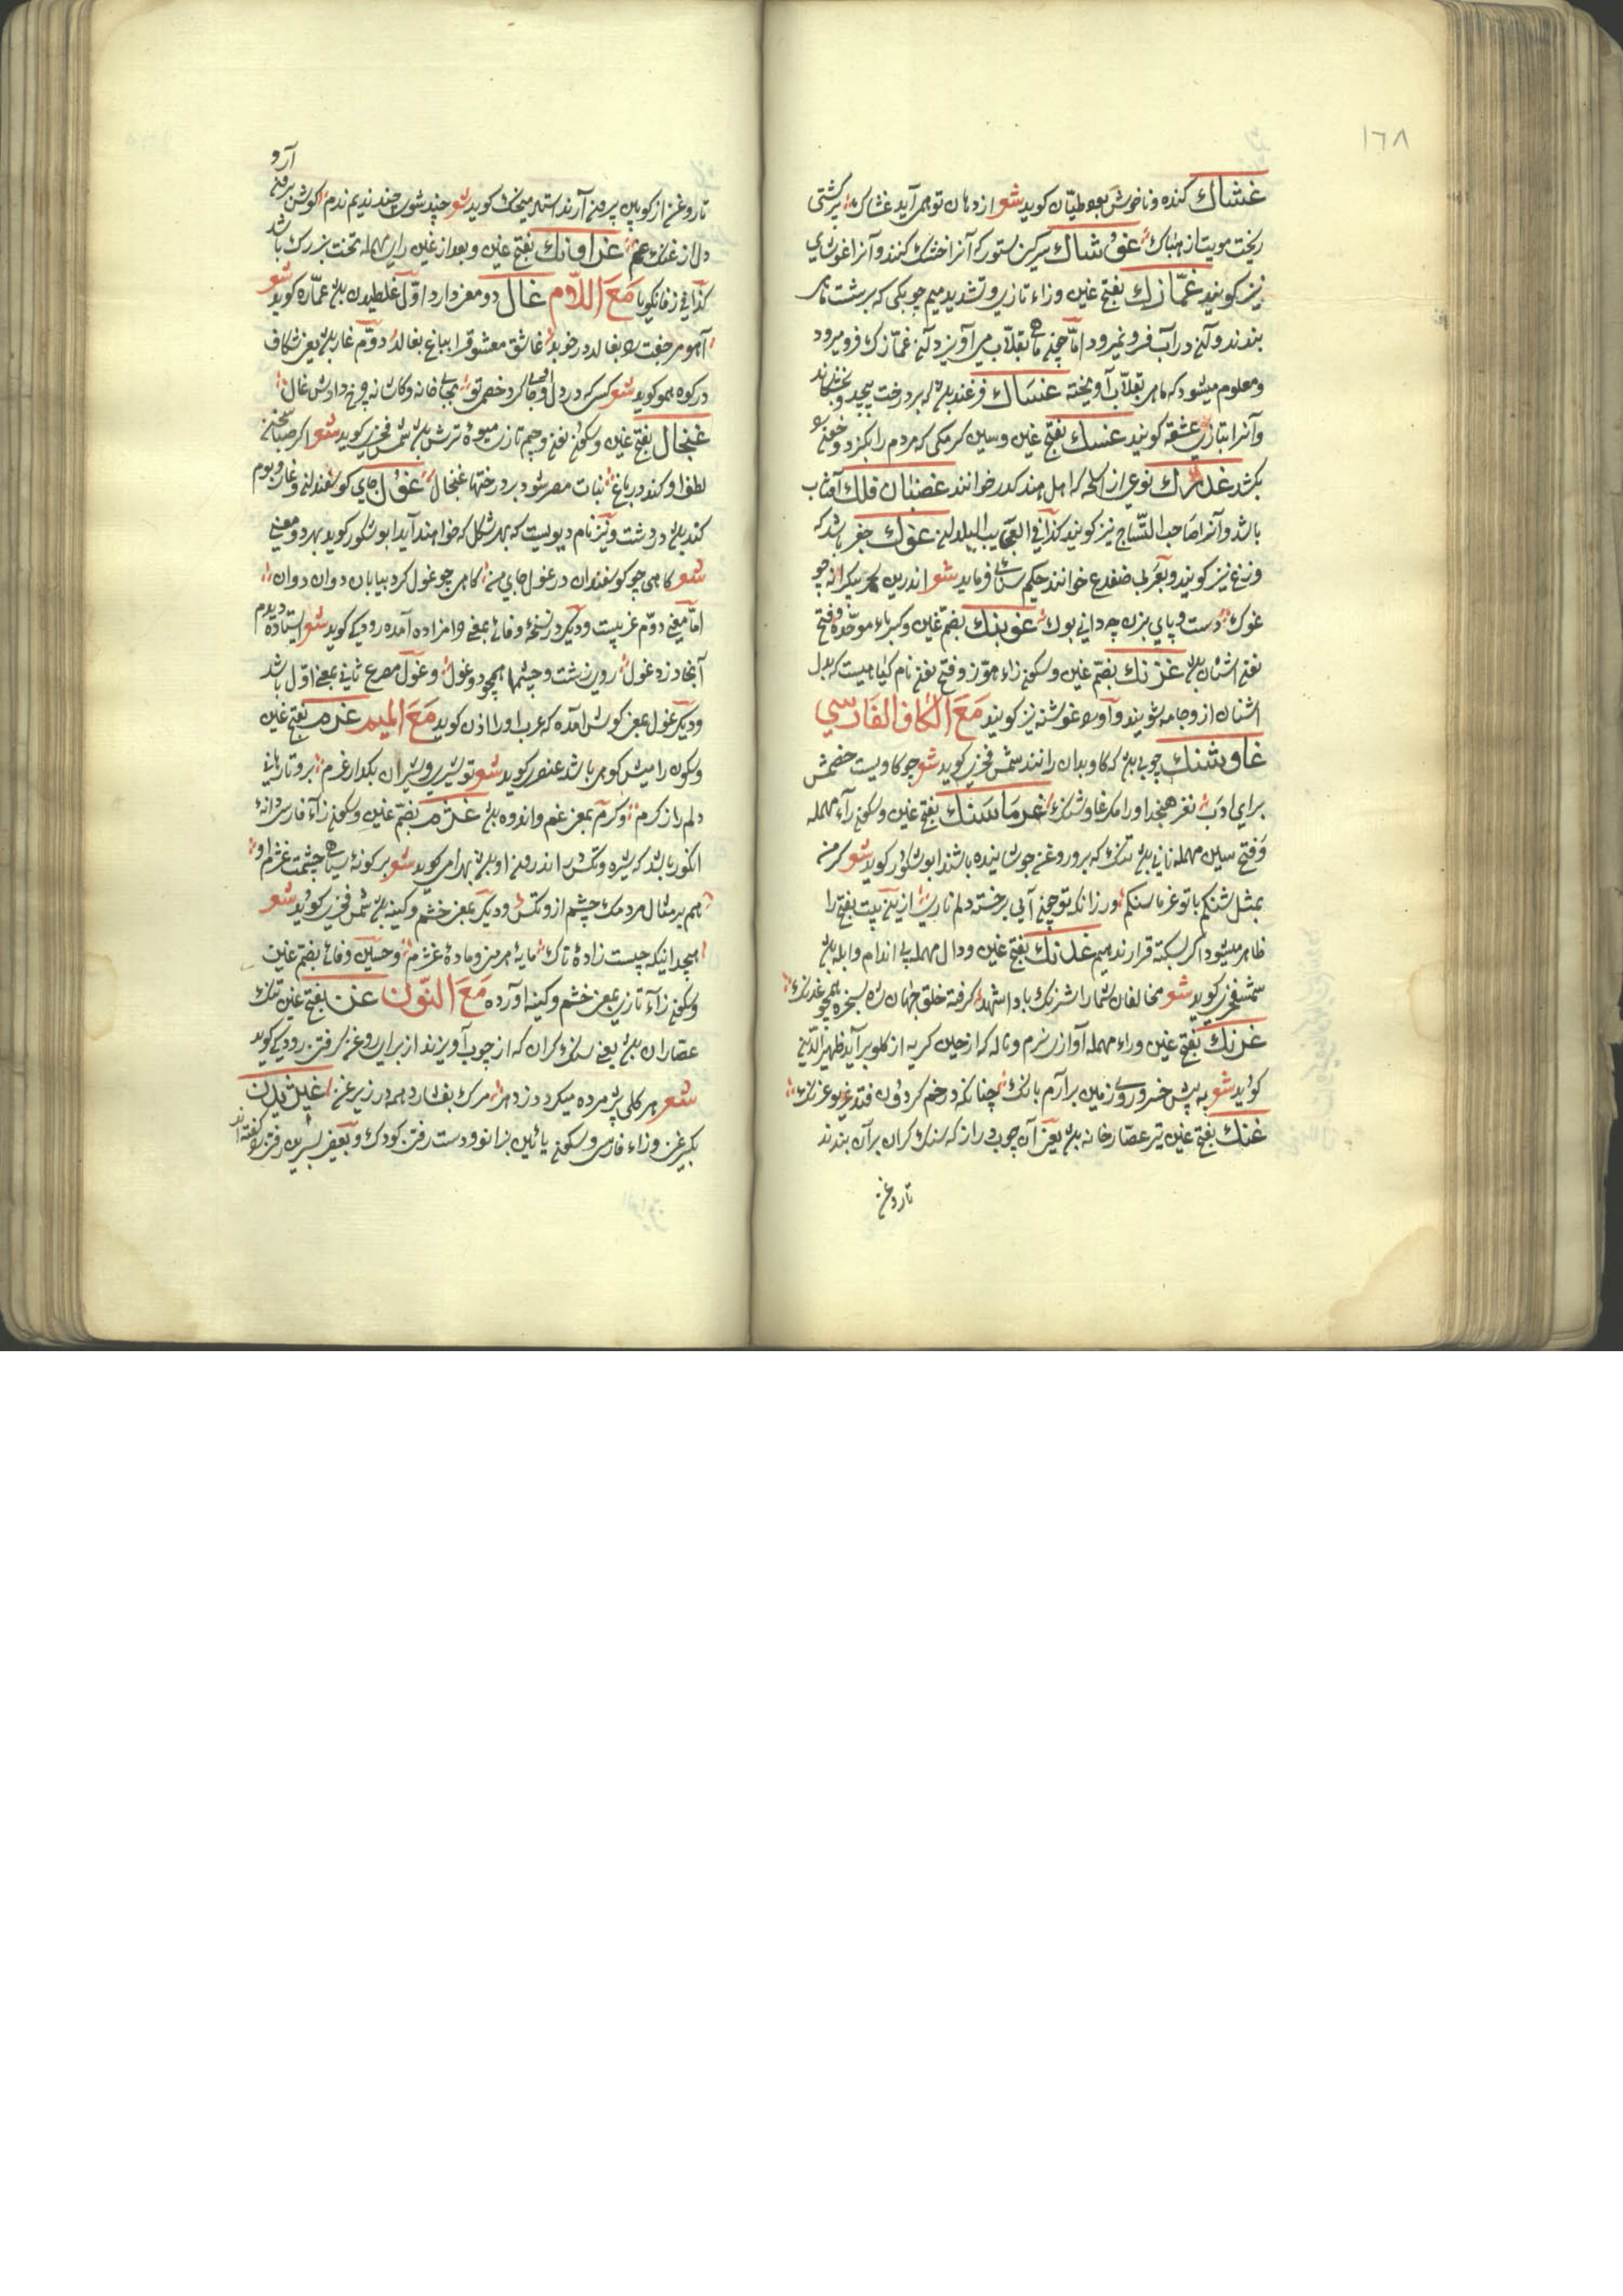 ١٦٨
غشاك كنده و ناخوش بود طيّان كويد شعر از دهان تو همی آيد غشاك پير كشتی
ريخت مويت از هباك غوشاك سركين ستور كه آنرا خشك كنند و آنرا غوشای
نيز كويند غمّازك بفتح غين وزاء تازی و تشديد ميم چوبكی كه بر شست ماهی
بندند و آن در آب فرو نميرود امّا چون ماهی بقلاب می آويزد آن غمّازك فرو ميرود
و معلوم ميشود كه ماهی بقلاب آويخته غساك فرغند بود كه بر درخت پيچد و بخشكاند
و آنرا بتازی عشقه كويند غسك بفتح غين و سين كرمكی كه مردم را بكزد و خون
بكشد غدرك نوعی از اسلحه كه اهل هند كدر خوانند غضبان فلك آفتاب
باشد و آنرا صاحب التّاج نيز كويند كذا فی العجايب البلدان غوك چغز باشد كه
وزغ نيز كويند و بعربی ضفدع خوانند حكيم سنائی فرمايد شعر اندرين بحر بيكرانه چو
غوك دست و پای بزن چه دانی بوك غوبنك بضمّ غين و كسر باء موحّده و فتح
نون اشنان بود غزنك بضمّ غين و سكون زاء هوّز و فتح نون نام كياهيست كه بدل
اشنان ازو جامه شويند و آورا غوشنه نيز كويند مَعَ الكاف الفَارسي
غاوشنك چوبی بود كه كاو بدان رانند شمس فخری كويد شعر چو كاويست خصمش
برای ادب نغز هنجد او را مكر غاوشنك غرماسنك بفتح غين و سكون راء مهمله
وفتح سين مهمله نانی بود تنك كه برو روغن جوشانيده باشند ابو شكور كويد شعر كر من
بمثل سنكم با تو غرماسنكم ور زانكه تو چون آبی بر خسته دلم ناری
ظاهر ميشود اكر بسكته قرار ندهيم غدنك بفتح غين و دال مهمله بی اندام و ابله بود
شمسفخری كويد شعر مخالفان شما را شرنك باد اشهد كرفته خلق جهان شان بسخره همچو غدنك
غرنك بفتح غين و راء مهمله آواز نرم و ناله كه از حين كريه از كلو برآيد ظهير الدّين
كويد شعر به پيش خسرو روی زمين برآرم بانك چنانكه در خم كردون فتد غريو غرنك
غنك بفتح غين تير عصّارخانه بود يعنی آن چوب دراز كه سنك كران بر آن بندند
تا روغن
آرو
تا روغن از كوبين بيرون آرند استاد منجيك كويد شعر چند شوی چند نديم ندم كوشش بيرون
دل از غنك غم غراونك بفتح غين و بعد از غين رای مهمله تخت بزرك باشد
كذا فی زفانكويا مَعَ اللّام غال دو معنی دارد اوّل غلطيدن بود عمّاره كويد شعر
آهو مر جفت را بغالد در خويد عاشق معشوق را بباغ بغالد دوّم غار بود يعنی شكاف
در كوه هموكويد شعر كسی كه در دل او جا كرد خصمی تو بجای خانه و كاشانه چرخ دادش غال
غنجال بفتح غين و سكون نون و جيم تازی ميوه ترش بود شمس فخری كويد شعر اكر صبا سخن
لطف او كند در باغ نبات مصر شود بر درختها غنجال غول جای كوسفندان و غار و بوم
كند بود در دشت و نيز نام ديويست كه بهر شكل كه خواهند آيد ابو شكور كويد بهر دو معنی
شعر كاهی چو كوسفندان در غول جای من كاهی چو غول كرد بيابان دوان دوان
امّا معنی دوّم عربيست و ديكر در نسخهٔ وفائی بمعنی وامزاده آمده رودكی كويد شعر ايستاده ديدم
آنجا دزد و غول روی زشت و چشمها همچو دو غول و غول مصرع ثانی بمعنی اوّل باشد
و ديكر غول بمعنی كوش آمده كه عرب او را اذن كويد مَعَ الميم غرم بفتح غين
و سكون را ميش كوهی باشد عنصری كويد شعر تو شيری و شيران بكردار غرم برو تا رهانی
دلم را ز كرم و كرم بمعنی غم و اندوه بود غژم بضمّ غين و سكون زاء فارسی دانهٔ
انكور باشد كه شيره و تكس اندرون او بود بهرامی كويد شعر بر كونهٔ سياهی چشمت غژم او
هم بر مثال مردمك چشم ازو تكس و ديكر بمعنی خشم و كينه بود شمس فخری كويد شعر
هيچ دانيكه چيست زادهٔ تاك مايهٔ هرمز و مادهٔ غژم و حسين وفائی بضمّ غين
و سكون زاء تازی بمعنی خشم و كينه آورده مَعَ النّون غن بفتح غين تنك
عصّاران بود يعنی سنك كران كه از چوب آويزند از برای روغن كرفتن رودكی كويد
شعر هر كلی پژمرده ميكردد ز دهر مرك بفشارد همه در زير غن غيژيدن
بكسر غين و زاء فارسی و سكون يا ئين بزانو و دست رفتن كودك و بعضی بسرين رفتن را كفته اند